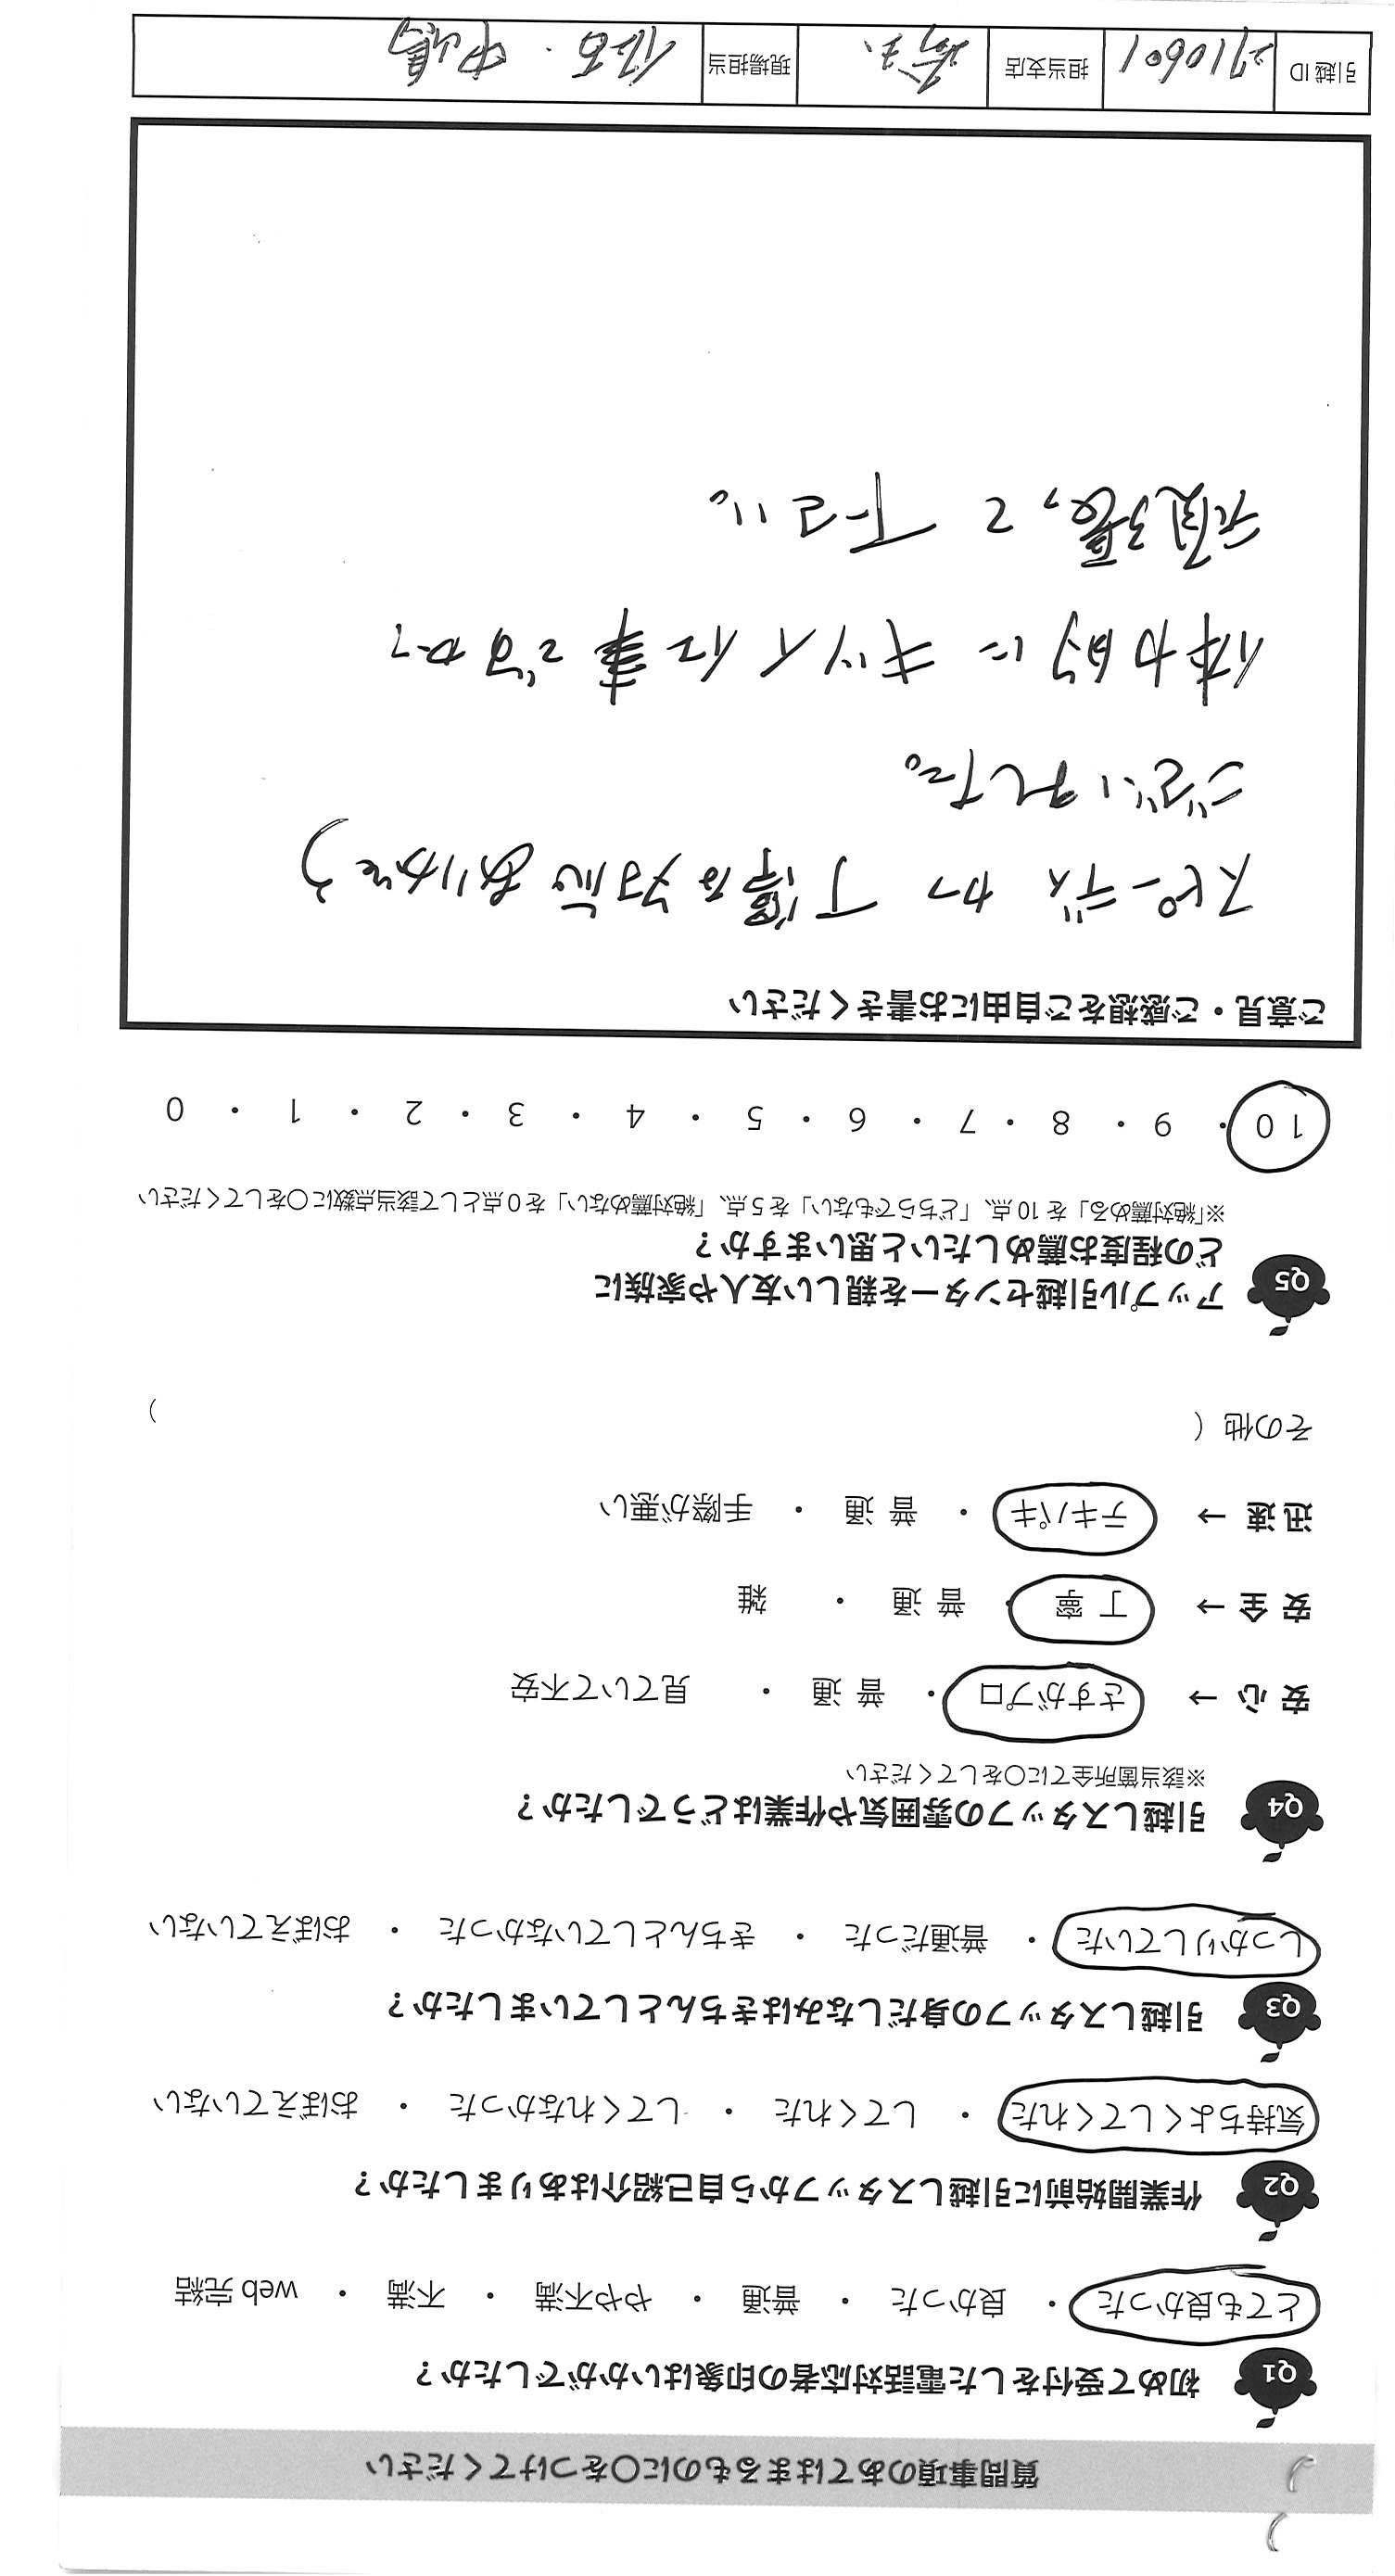 質問事項のあてはまるものに○をつけてください
Q1 初めて受付をした電話対応者の印象はいかがでしたか？
とても良かった ・ 良かった ・ 普通 ・ やや不満 ・ 不満 ・ web 完結
Q2 作業開始前に引越しスタッフから自己紹介はありましたか？
気持ちよくしてくれた ・ してくれた ・ してくれなかった ・ おぼえていない
Q3 引越しスタッフの身だしなみはきちんとしていましたか？
しっかりしていた ・ 普通だった ・ きちんとしていなかった ・ おぼえていない
Q4 引越しスタッフの雰囲気や作業はどうでしたか？
※該当箇所全てに○をしてください
安心 → さすがプロ ・ 普通 ・ 見ていて不安
安全 → 丁寧 ・ 普通 ・ 雑
迅速 → テキパキ ・ 普通 ・ 手際が悪い
その他 ( )
Q5 アップル引越センターを親しい友人や家族に
どの程度お薦めしたいと思いますか？
※「絶対薦める」を 10 点、「どちらでもない」を 5 点、「絶対薦めない」を 0 点として該当点数に○をしてください
10 ・ 9 ・ 8 ・ 7 ・ 6 ・ 5 ・ 4 ・ 3 ・ 2 ・ 1 ・ 0
ご意見・ご感想をご自由にお書きください
スピーディ かつ 丁寧な対応ありがとう
ございました。
体力的に キツイ仕事ですが
頑張って 下さい。
引越 ID 2710601 担当支店 埼玉 現場担当 中嶋